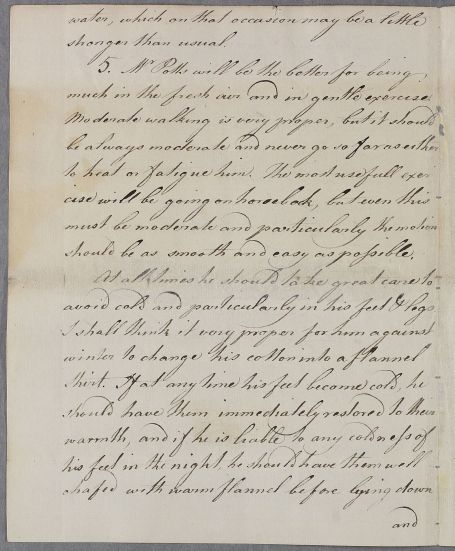 water, which on that occasion may be a little
stronger than usual.
5. Mr Potts will be the better for being
much in the fresh air and in gentle exercise.
Moderate walking is very proper, but it should
be always moderate and never go so far as either
to heat or fatigue him. The most usefull exer
cise will be going on horseback, but even this
must be moderate and particularly the motion
should be as smooth and easy as possible.
At all times he should take great care to
avoid cold and particularly in his feet & legs
I shall think it very proper for him against
winter to change his cotton into a flannel
shirt. If at any time his feet become cold, he
should have them immediately restored to their
warmth, and if he is liable to any coldness of
his feet in the night, he should have them well
chafed with warm flannel before lying down
and